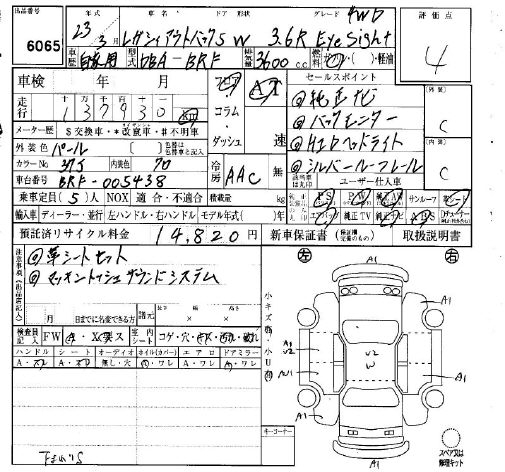 出品番号 年式 車名 ドア 形状 グレード 4WD 評価点
6065 23年3月 レガシィアウトバック5W 3.6R EyeSight 4
車歴 自家用 型式 DBA-BRF 排気量 3600 c.c. 燃料 ガソリン・( )・軽油
車検 年 月 セールスポイント
走行 十 万 千 百 十 一
137930 km
コラム・ダッシュ 速
◎純正ナビ
◎バックモニター
◎HIDヘッドライト
◎シルバールーフレール
外装 C
内装 C
メーター歴 $交換車・*改竄車・#不明車
外装色 パール
カラーNo. 37J 内装色 70
車台番号 BRF-005438
冷房 AAC 無
ユーザー仕入車
乗車定員 (5)人 NOX 適合・不適合 積載量 kg
サンルーフ
輸入車 ディーラー・並行 左ハンドル・右ハンドル モデル年式( )年
純正TV
預託済リサイクル料金 14,820円 新車保証書 取扱説明書
注意事項
◎革シートセット
◎マッキントッシュサウンドシステム
左 右
月 日までに名変できる方 諸元
検査員記入 FW 室内シート コゲ・穴
ハンドル シート オーディオ ホイル(カバー) エアロ ドアミラー
無し・穴
小キズ 小U
A1
A1
A1
U2
W
A1
A1
A1
下まわりS
キーコーナー
スペア又は修理キット